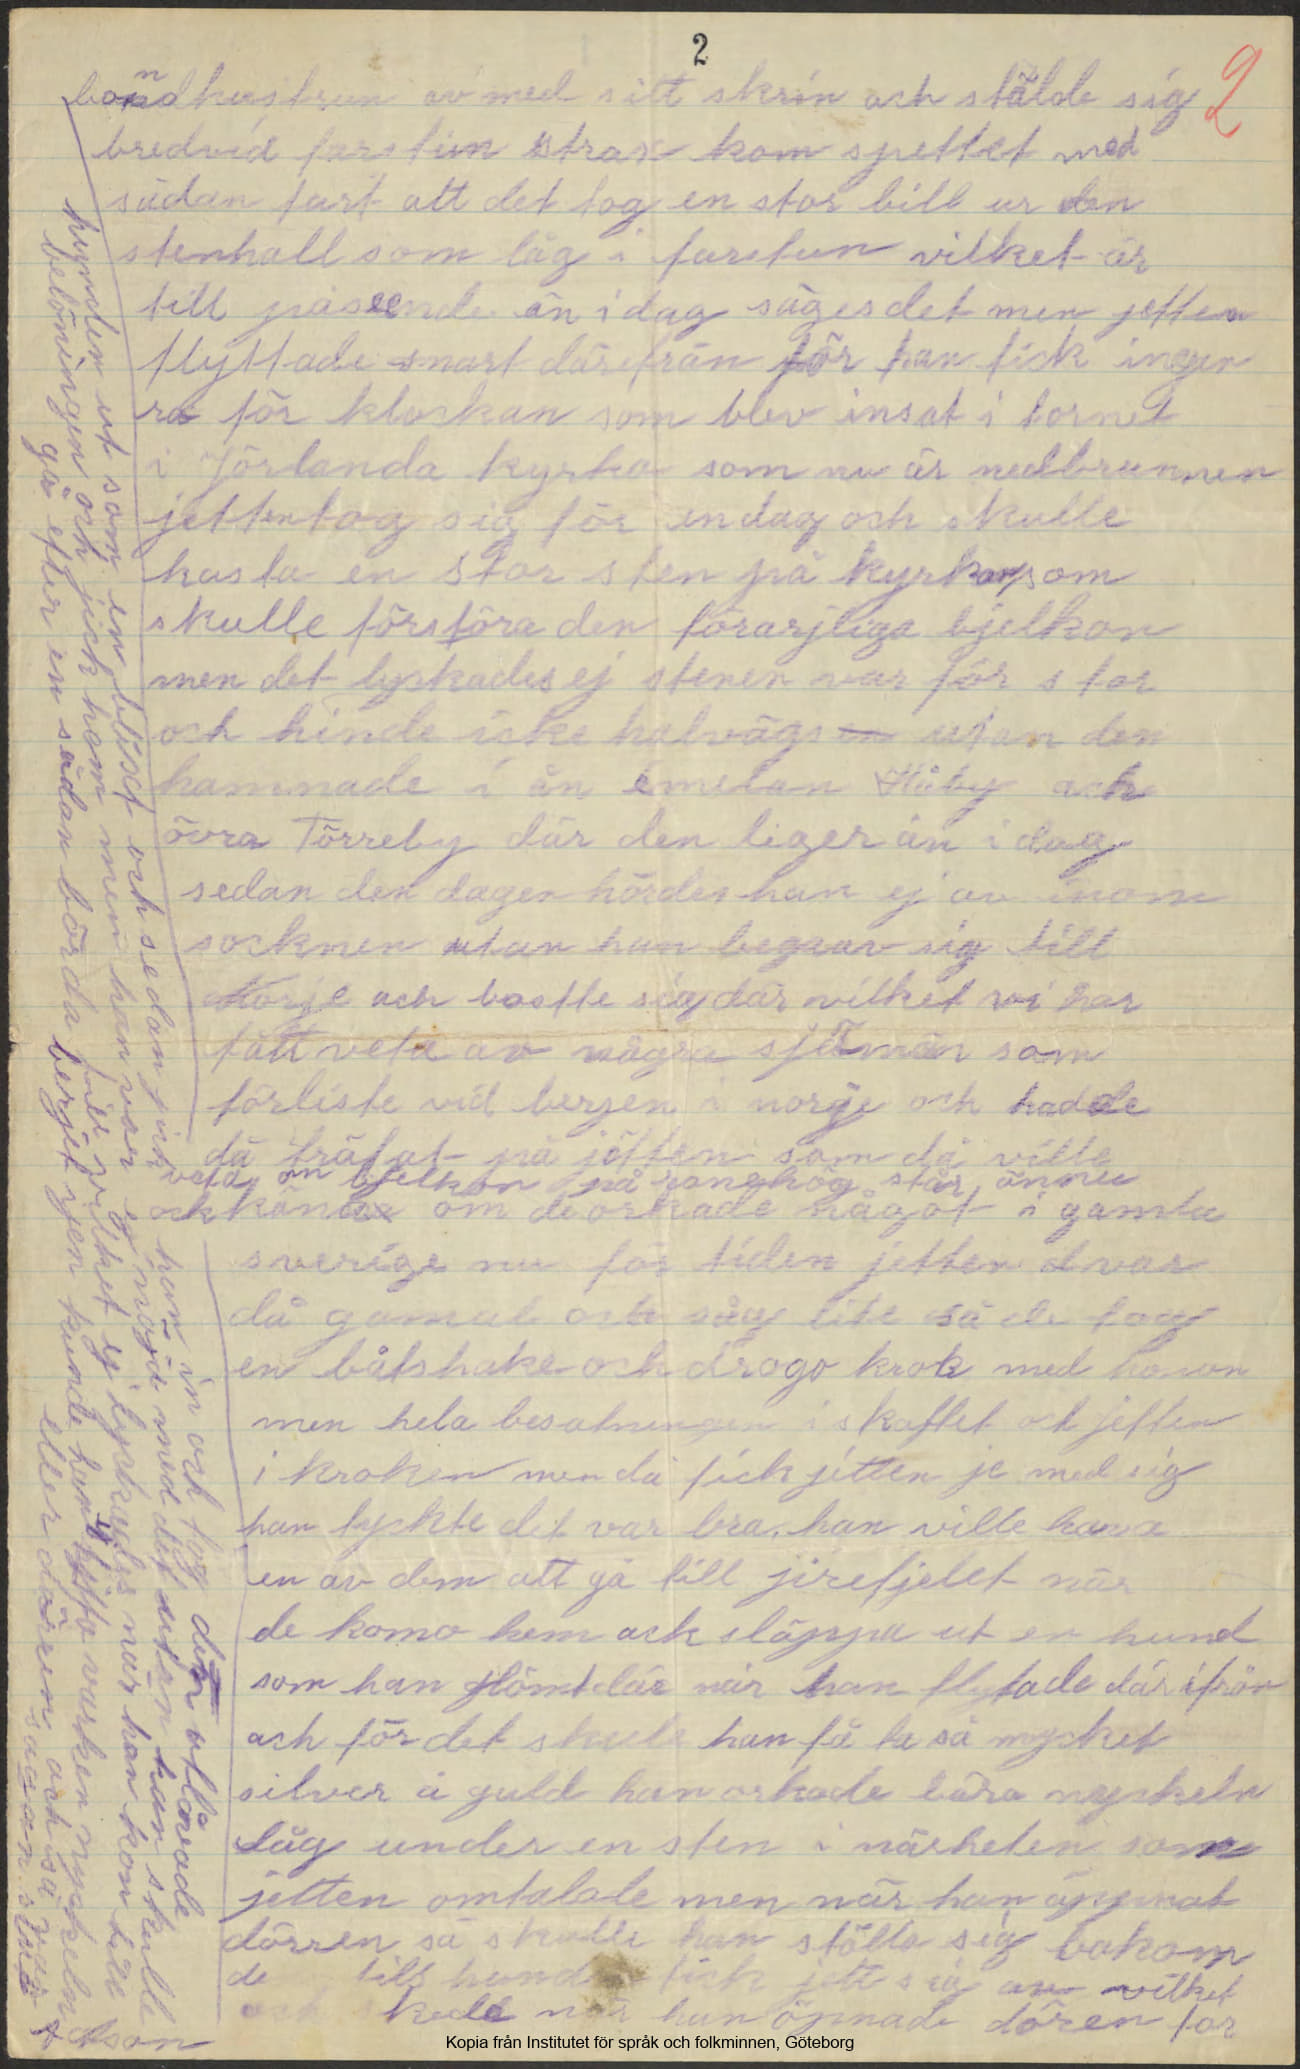 2
2
bondhustrun av med sitt skrin och stälde sig
bredvid farstun strax kom spettet med
sådan fart att det tog en stor bill ur den
stenhall som låg i farstun vilket är
till påseende än i dag säges det men jetten
flyttade snart därifrån för han fick ingen
ro för klockan som blev insat i tornet
i Jörlanda kyrka som nu är nedbrunnen
jetten tog sig för en dag och skulle
kasta en stor sten på kyrkan som
skulle förstöra den förarjliga bjelkon
men det lyckades ej stenen var för stor
och hinde icke halvägs utan den
hamnade i ån emelan Håby och
övra Törreby där den liger än i dag
sedan den dagen hördes han ej av inom
socknen utan han begaav sig till
Norje och bosatte sig där vilket vi har
fått veta av några sjömän som
förliste vid berjen i norge och hadde
då träfat på jetten som då ville
veta om bjelkon på ranehög står ännu
och känna om de orkade något i gamla
sverige nu för tiden jetten var
då gamal och såg lite så de tog
en båtshake och drogo krok med honon
men hela besatningen i skaftet och jetten
i kroken men då fick jetten je med sig
han tyckte det var bra. han ville hava
en av dem att gå till jirefjelet när
de komo hem ock släppa ut en hund
som han glömt där när han flytade därifrån
och för det skule han få ta så mycket
silver å guld han orkade bära nyckeln
låg under en sten i närheten som
jetten omtalade men när han öppnat
dörren så skulle han ställa sig bakom
de till hunden fick jett sig av vilket
och skedde när han öpnade dören for
hunden ut som en blixt och sedan jick han in och tog den utlovade
belöningen och jick hem men han var ej nöjd med det utan han skulle
gå efter en sådan börda till vilket ej lyckades när han kom till
berjet ijen kunde han ej hitta varken nyckeln
eller dören och så var
sagan slut